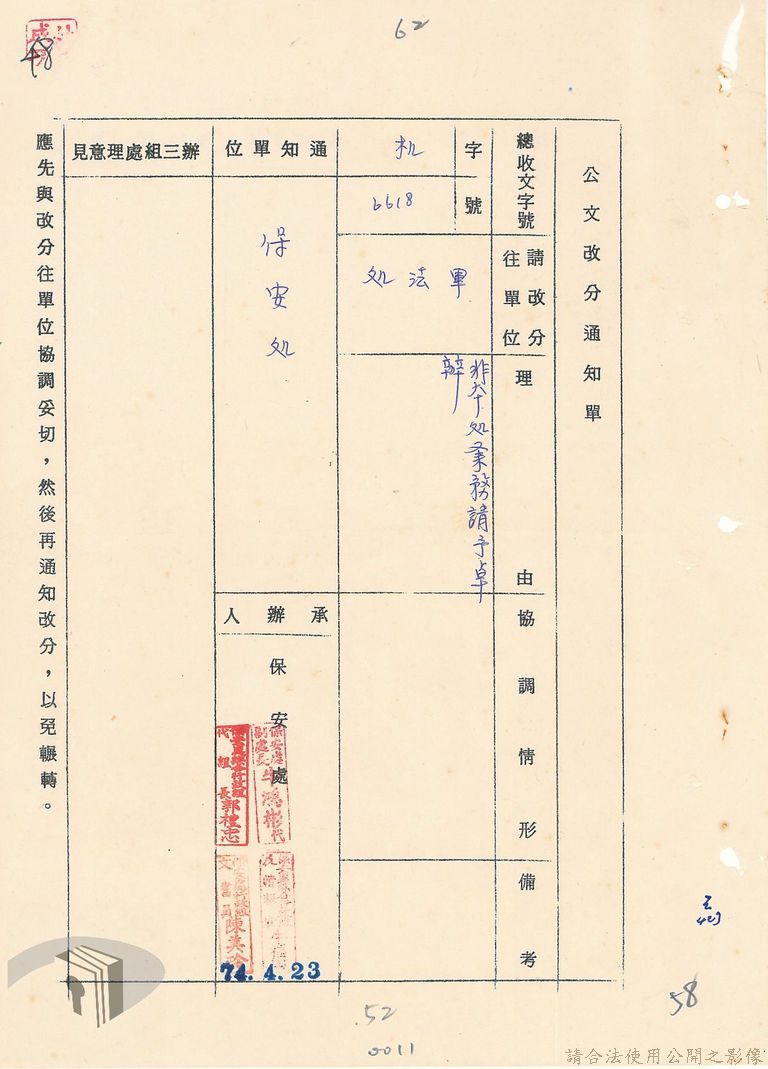 62
48
公文改分通知單
總收文字號
字
机
號
6618
請改分
往單位
軍法处
理由
非本处業務請予卓
辦
協調情形
備考
通知單位
保安处
承辦人
保安處
保安處
副處長
牛鴻彬代
代組長郭禮忠
文書員陳英
74.4.23
辦三組處理意見
應先與改分往單位協調妥切，然後再通知改分，以免輾轉。
58
52
0011
請合法使用公開之影像